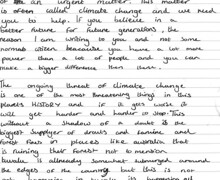 of an urgent matter. This matter
is often called climate change and we need
you to help. If you believe in a
better future for future generations, the
reason I am writing to you and not some
normal citizen because you have a lot more
power than a lot of people and you can
make a bigger difference then
The ongoing threat of climate change
is one of the most threarening things in this
planets HISTORY and if it gets worse it
will get harder and harder to stop. This
without a shadow of a doubt is the
biggest supplyer of drouts and famine and
forest fires in places like australia that
is ruining their forest not to mention
tuvalu is already somewhat submerged around
the edges of the country but this is not